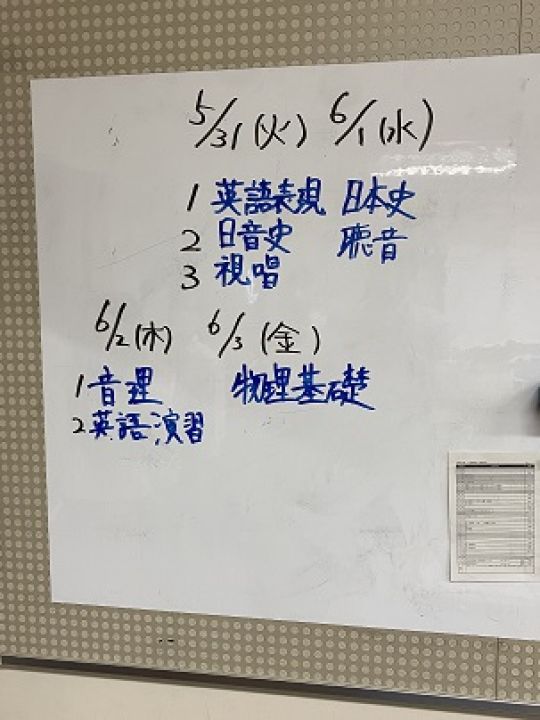 5/31(火) 6/1(水)
1 英語表現 日本史
2 日音史 聴音
3 視唱
6/2(木) 6/3(金)
1 音理 物理基礎
2 英語演習